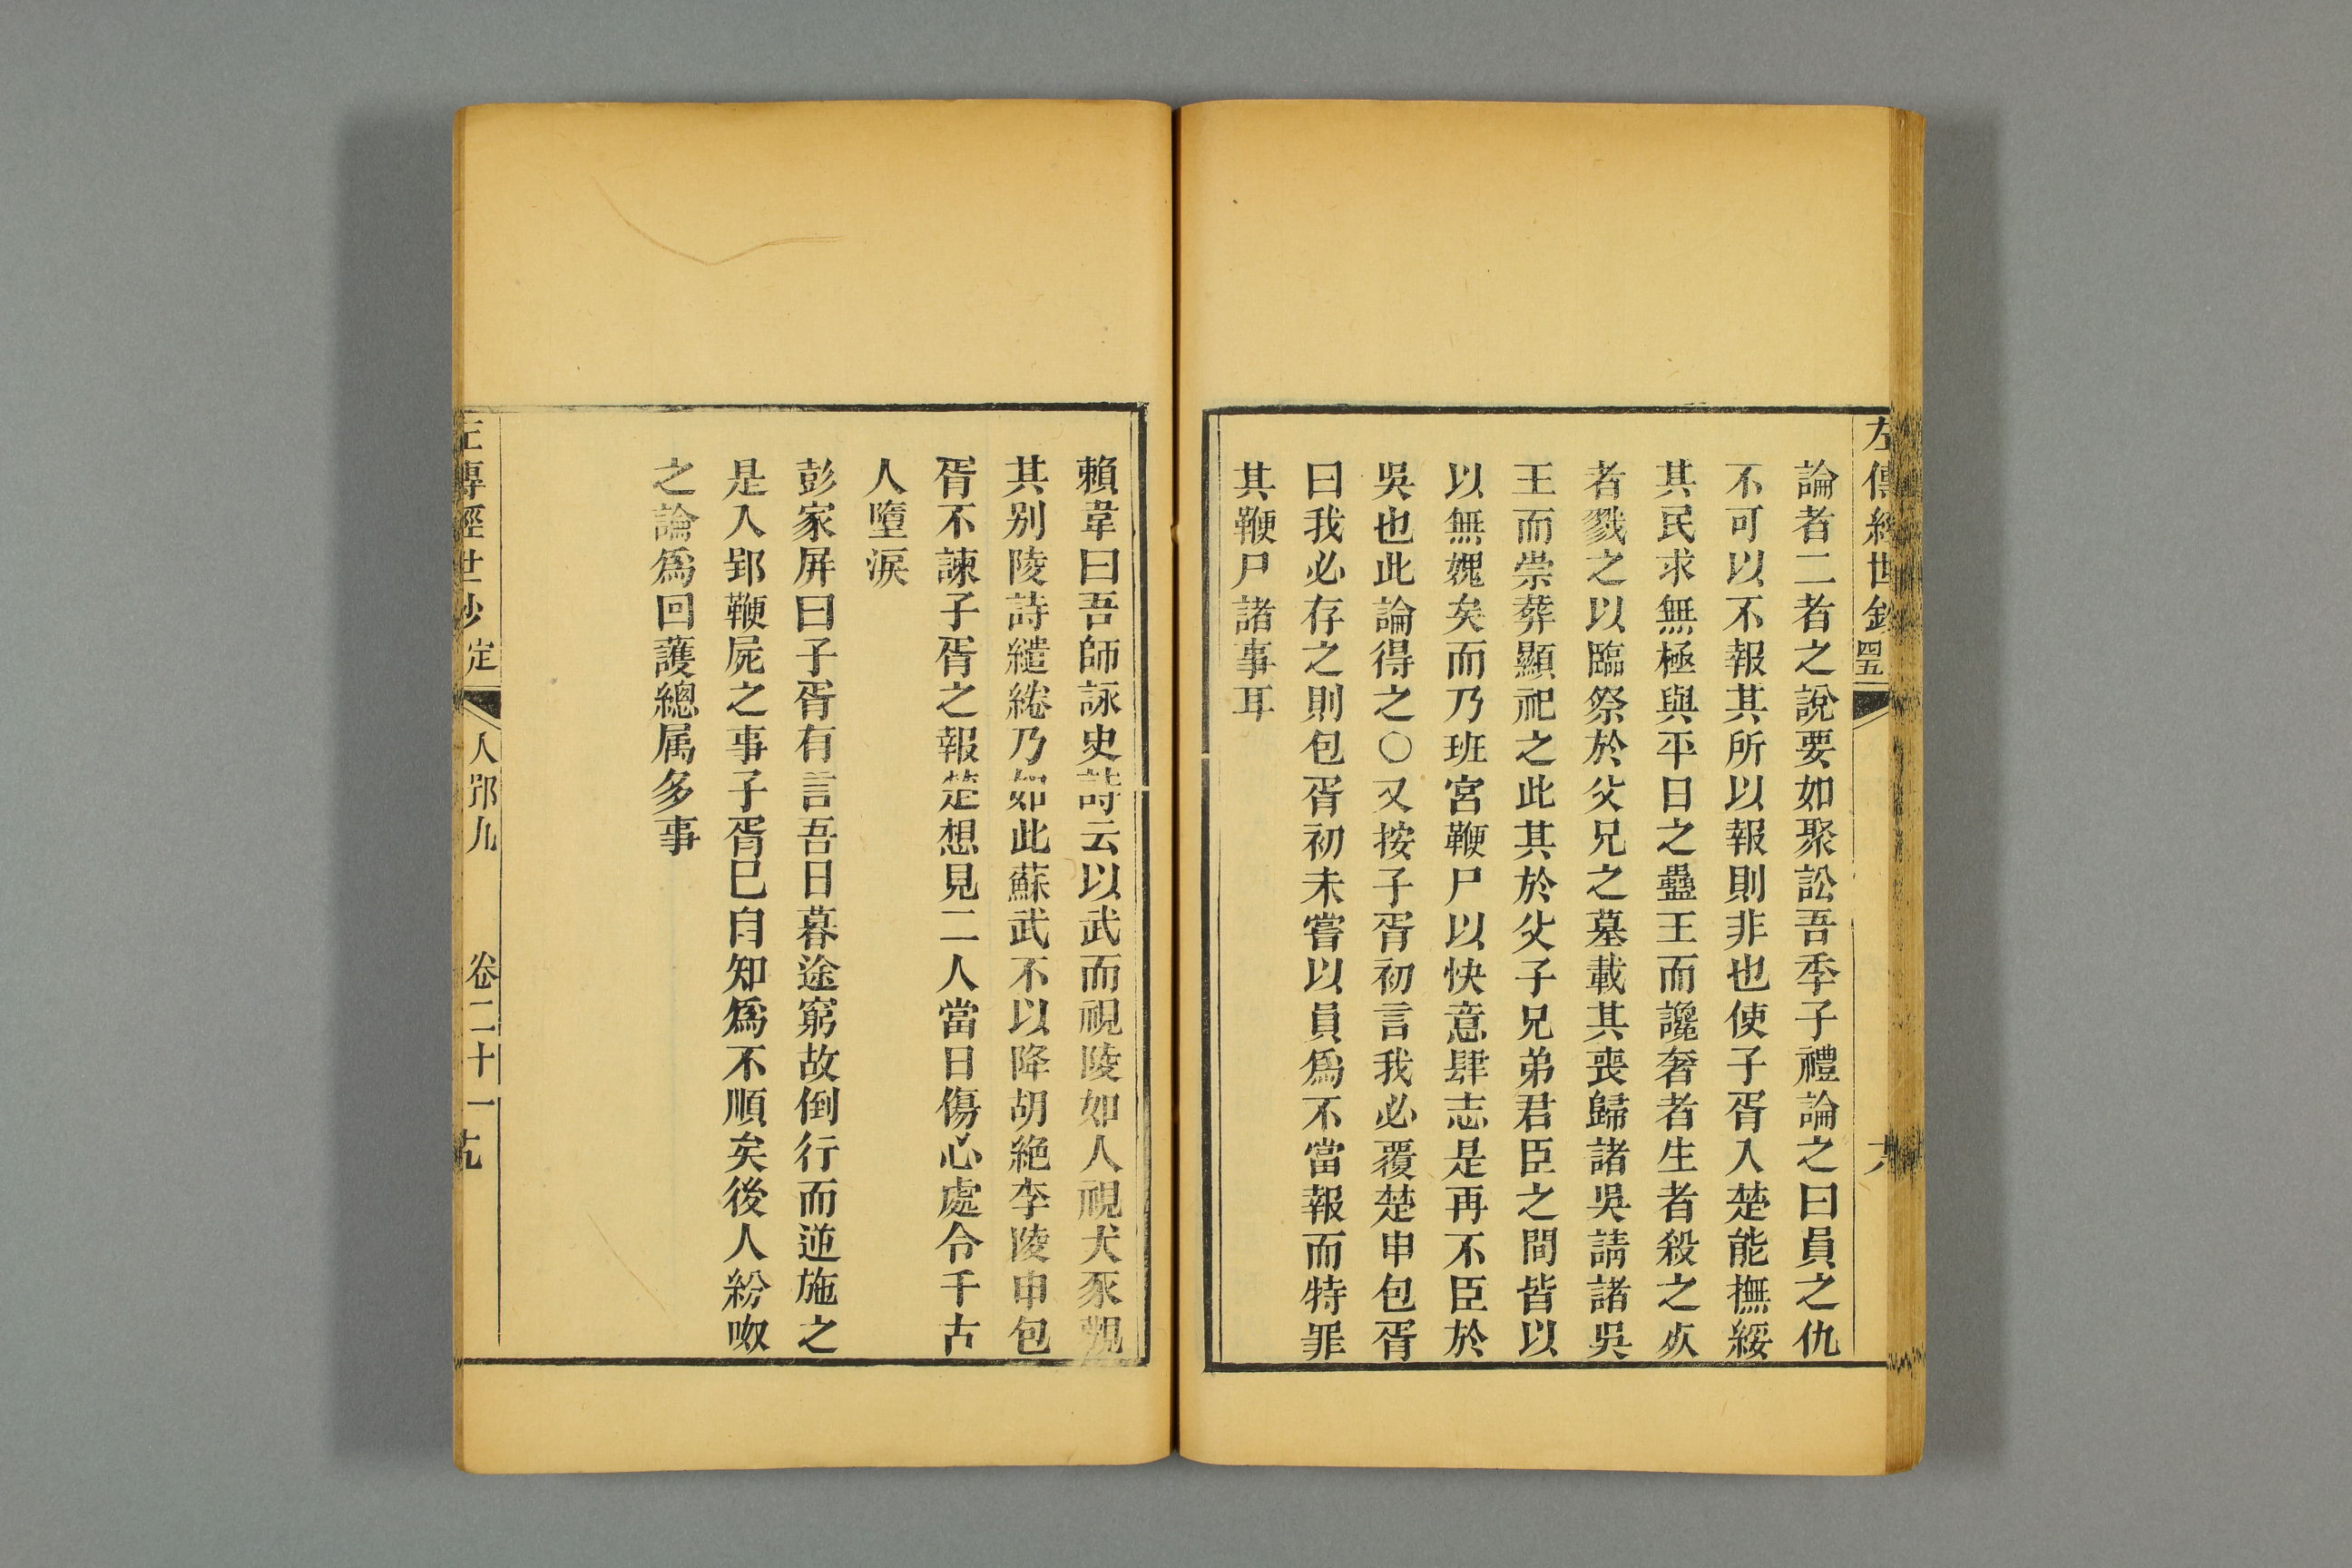 左傳經世鈔 四五
論者二者之說要如聚訟吾季子禮論之曰員之仇
不可以不報其所以報則非也使子胥入楚能撫綏
其民求無極與平日之蠱王而讒奢者生者殺之死
者戮之以臨祭於父兄之墓載其喪歸諸吳請諸吳
王而崇葬顯祀之此其於父子兄弟君臣之間皆以
以無媿矣而乃班宮鞭尸以快意肆志是再不臣於
吳也此論得之〇又按子胥初言我必覆楚申包胥
曰我必存之則包胥初未嘗以員爲不當報而特罪
其鞭尸諸事耳
賴韋曰吾師詠史詩云以武而視陵如人視犬豕觀
其别陵詩繾綣乃如此蘇武不以降胡絶李陵申包
胥不諫子胥之報楚想見二人當日傷心處令千古
人墮淚
彭家屏曰子胥有言吾日暮途窮故倒行而逆施之
是入郢鞭屍之事子胥已自知爲不順矣後人紛呶
之論爲回護總属多事
左傳經世鈔 定 入郢九 卷二十一 十九